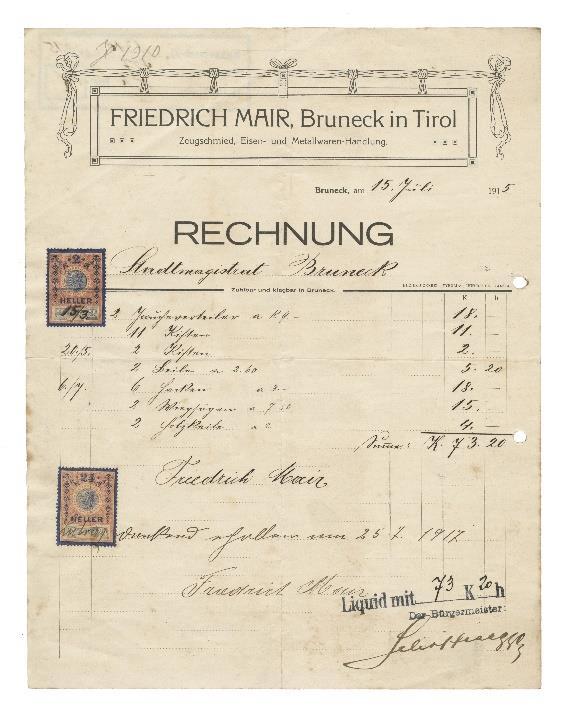 FRIEDRICH MAIR, Bruneck in Tirol
Zeugschmied, Eisen- und Metallwaren-Handlung.
Bruneck, am 15. Juli 1915
RECHNUNG
Stadtmagistrat Bruneck
2
HELLER
15/3.
Zahlbar und klagbar in Bruneck.
K h
2 Jaucheverteiler a K 9 – 18. –
11 Kisten 11. –
20/5. 2 Kisten 2. –
2 Beile a 2.60 5. 20
6/7. 6 Hacken a 3 – 18. –
2 a 7.50 15. –
2 a 2 4. –
Summe: K. 73. 20
Friedrich Mair
HELLER
dankend erhalten am 25 7. 1917
Friedrich Mair
Liquid mit 73 K 20 h
Der Bürgermeister: